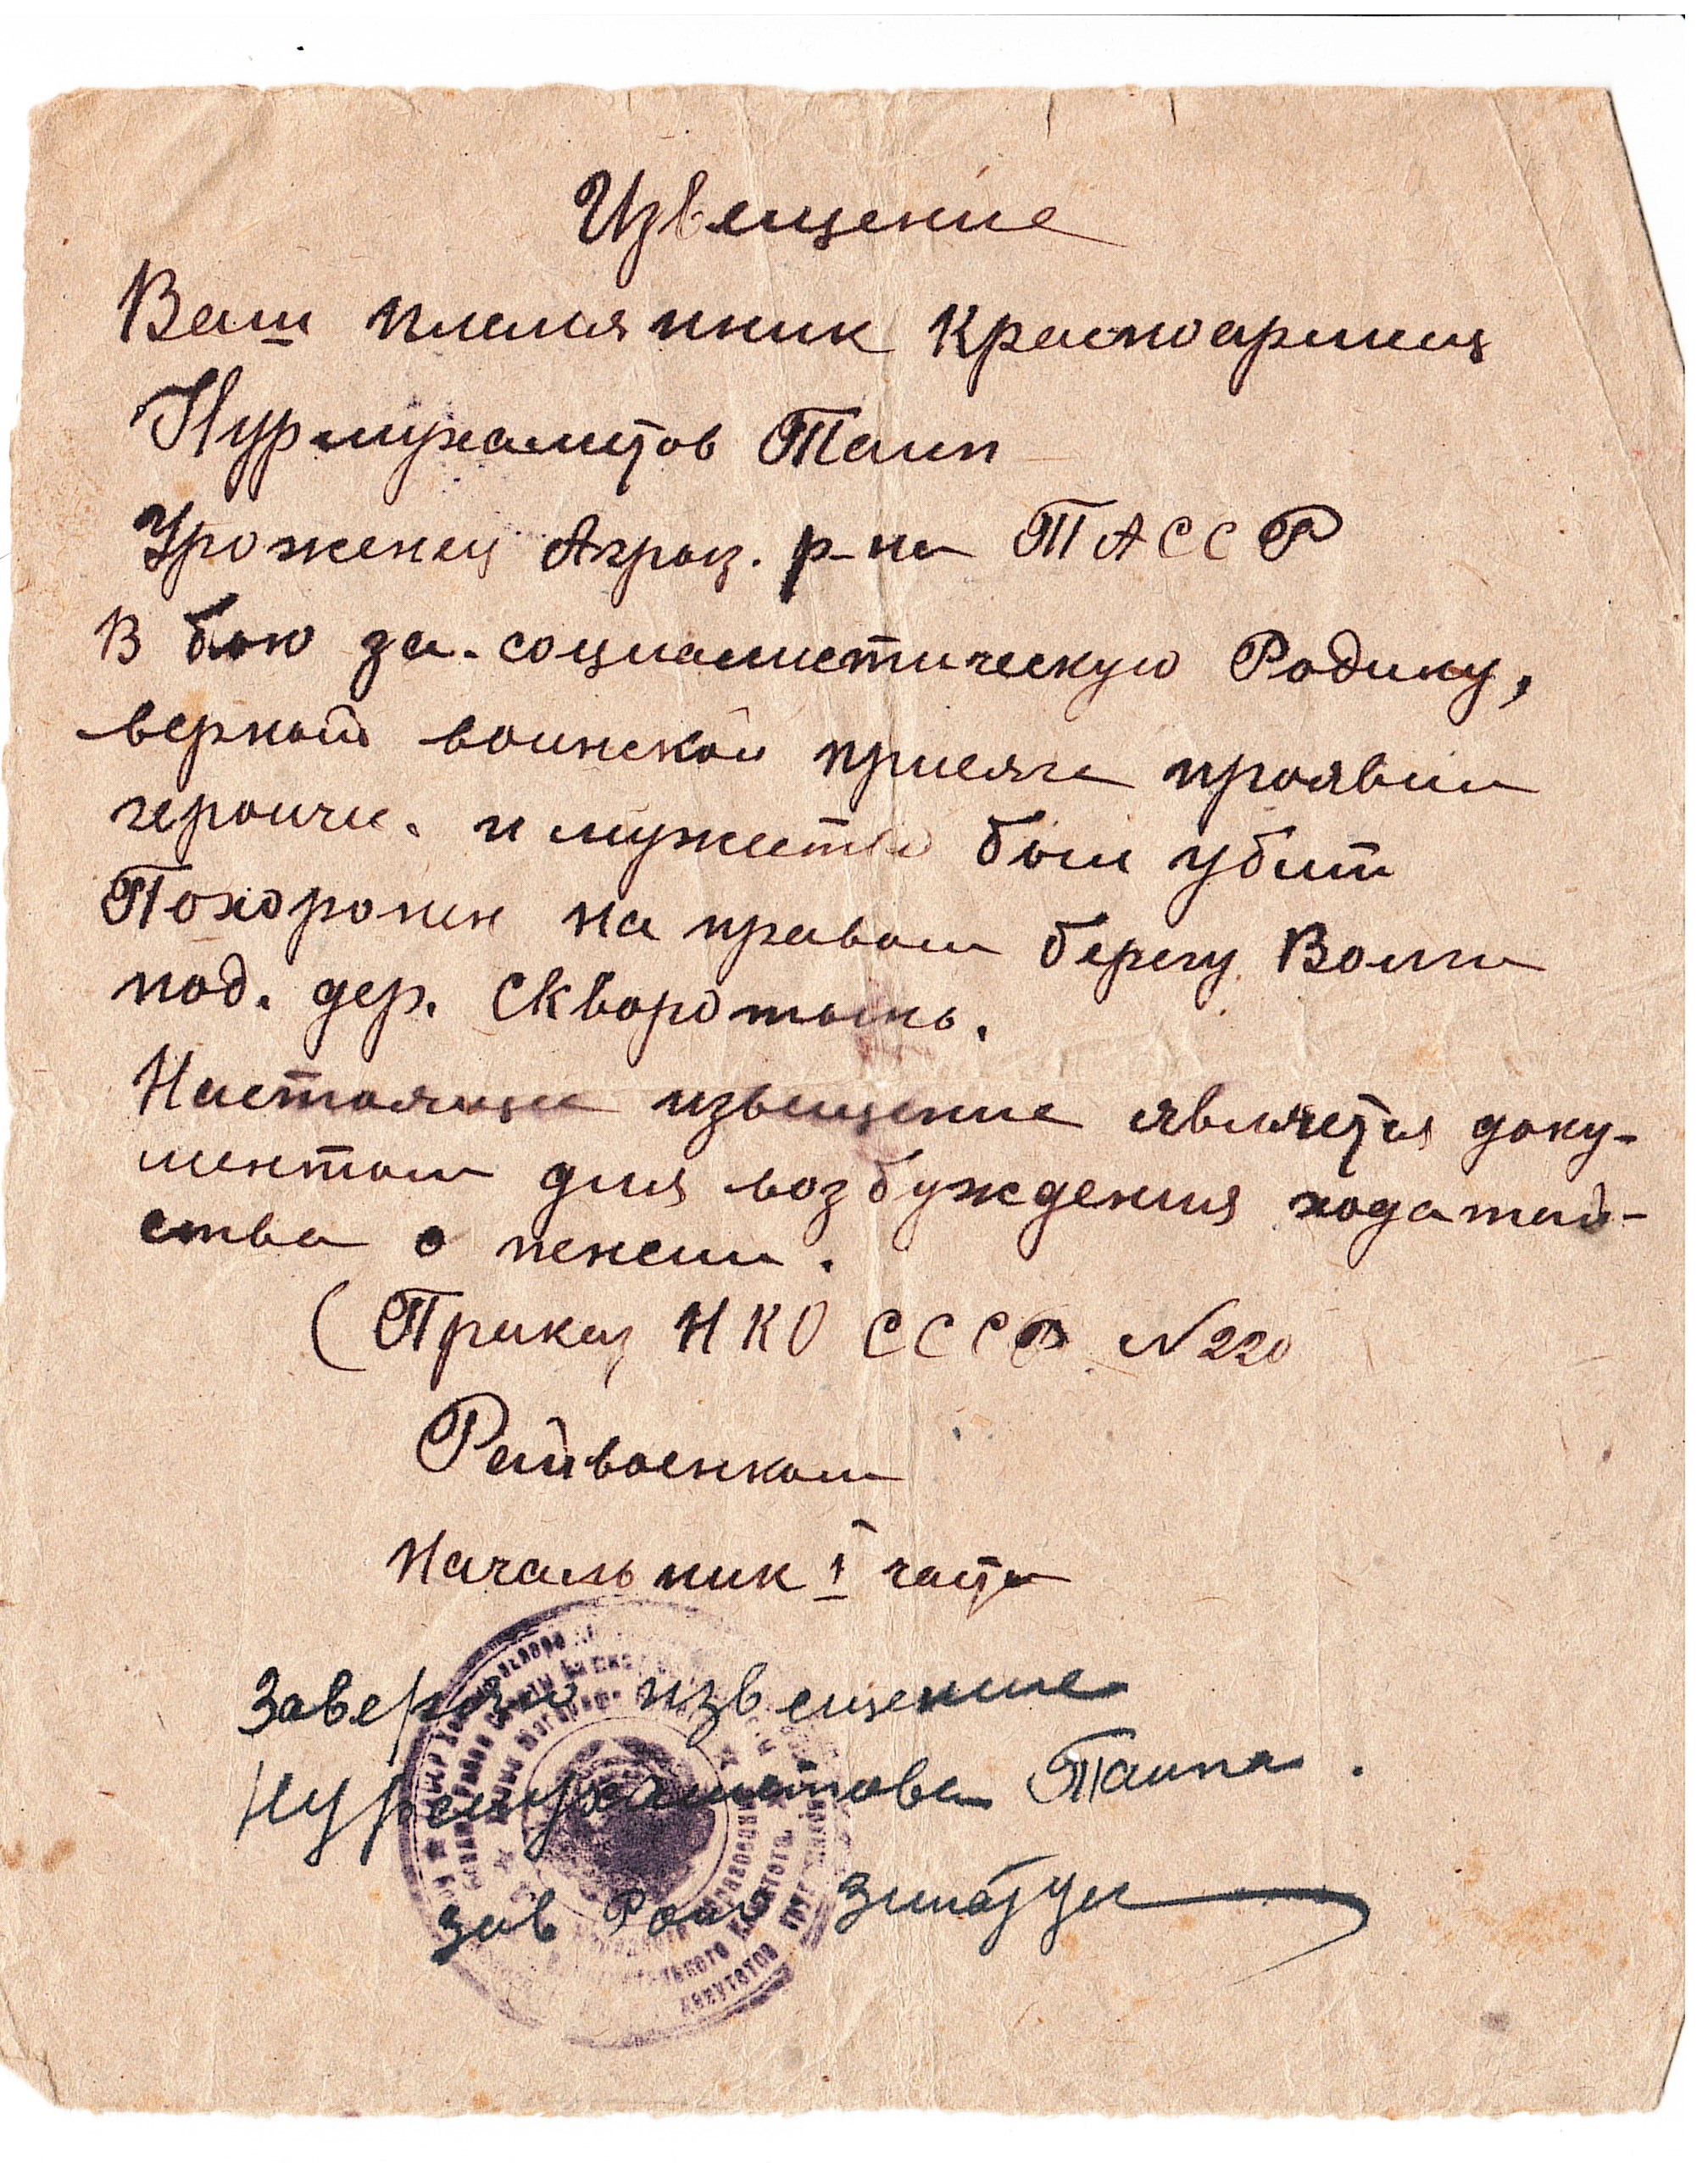 Извещение
Ваш племянник Красноармеец
Нурмухаметов Таип
Уроженец Агрыз. р-на ТАССР
В бою за социалистическую Родину,
верной воинской присяге проявив
героич. и мужество был убит
Похоронен на правом берегу Волги
под. дер. Скворотынь.
Настоящее извещение является доку-
ментом для возбуждения ходатай-
ства о пенсии.
(Приказ НКО СССР N 220
Райвоенком
Начальник 1 части
Заверяю извещение
Нурмухаметова Таипа.
Зав